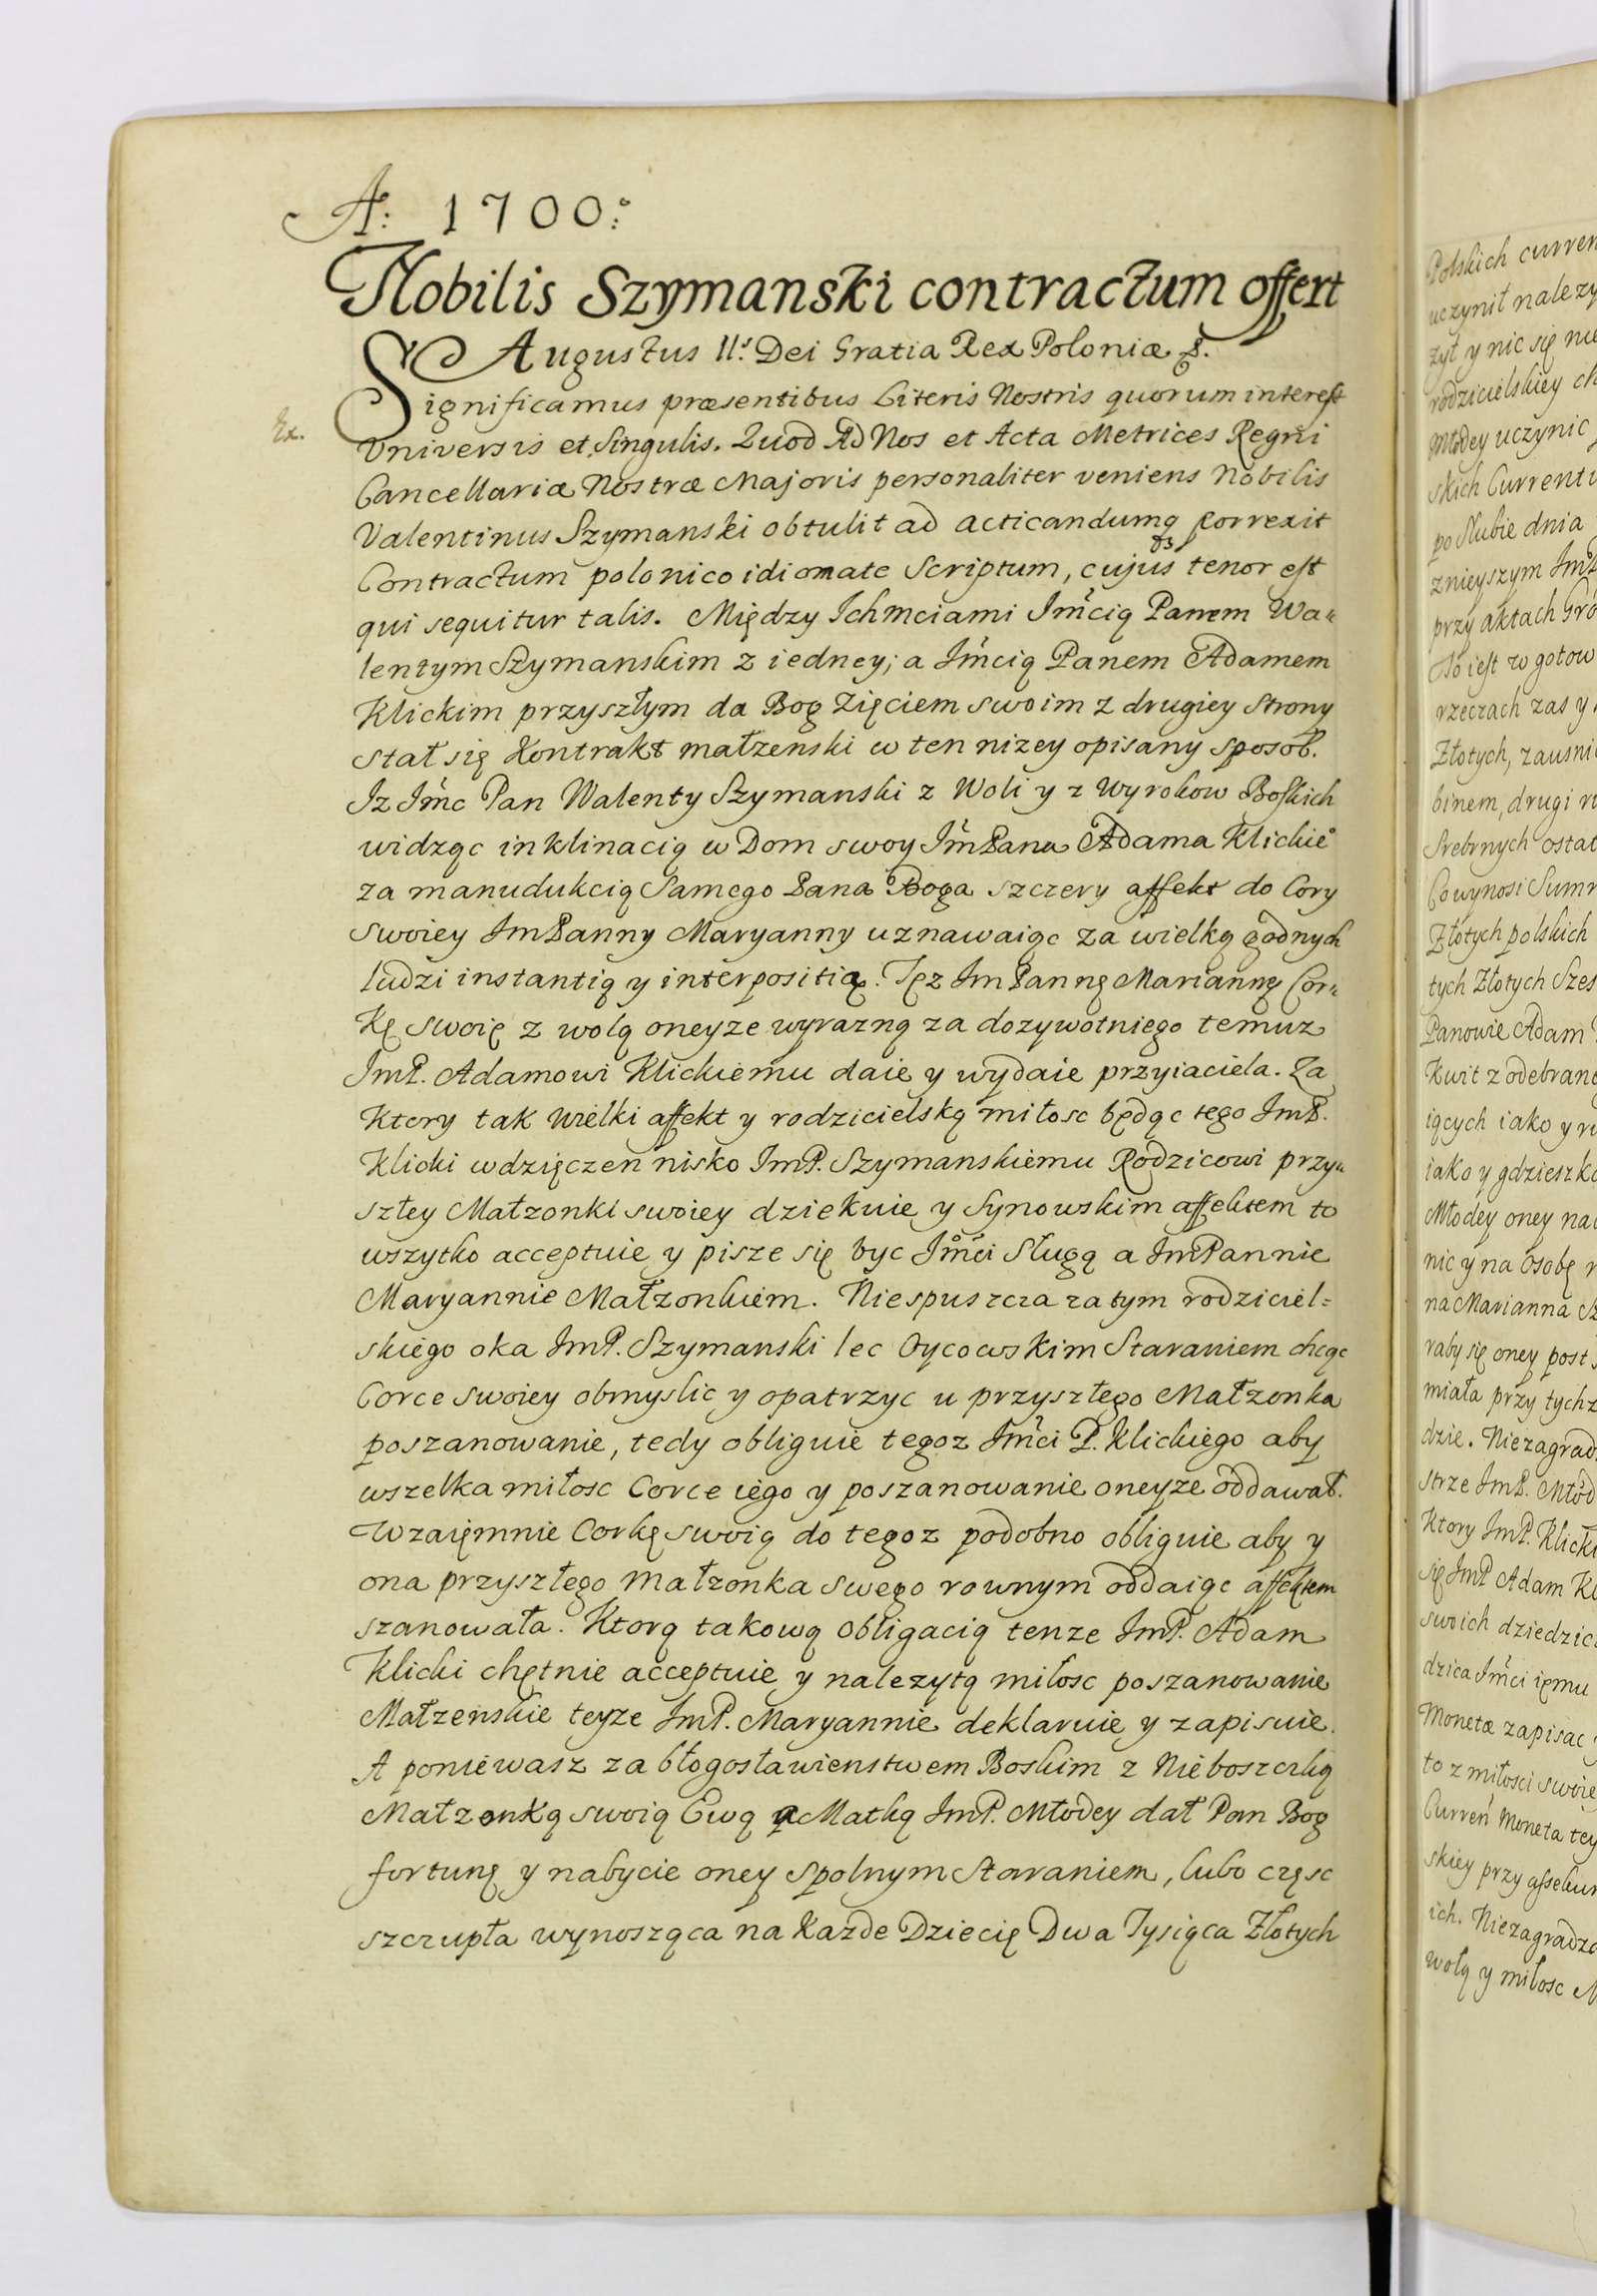 A: 1700:
Nobilis Szymanski contractum offert
Augustus II.s Dei Gratia Rex Poloniæ &.
Significamus præsentibus Literis Nostris quorum interest
Ex.
Universis et Singulis. Quod Ad Nos et Acta Metrices Regni
Cancellariæ Nostræ Majoris personaliter veniens Nobilis
Valentinus Szymanski obtulit ad acticandumq porrexit
Contractum polonico idiomate Scriptum, cujus tenor est
qui sequitur talis. Między Ichmciami Jmcią Panem Wa"
lentym Szymanskim z iedney; a Jmcią Panem Adamem
Klickim przyszłym da Bog Zięciem swoim z drugiey Strony
stał się Kontrakt małzenski w ten nizey opisany sposob.
Iz Jmc Pan Walenty Szymanski z Woli y z Wyrokow Boskich
widząc inklinacią w Dom swoy Jm Pana Adama Klickie°
za manudukcią Samego Pana Boga szczery affekt do Cory
swoiey JmPanny Maryanny uznawaiąc za wielką godnych
ludzi instantią y interpositią. Tęz Jm Pannę Mariannę Cor"
Kę swoię z wolą oneyze wyrazną za dozywotniego temuz
JmP. Adamowi Klickiemu daie y wydaie przyiaciela. Za
Ktory tak wielki affekt y rodzicielską miłosc będąc tego JmP.
Klicki wdzięczen nisko JmP. Szymanskiemu Rodzicowi przy"
szłey Małzonki swoiey dziekuie y Synowskim affektem to
wszytko acceptuie y pisze się byc Jmći Sługą a JmPannie
Maryannie Małzonkiem. Niespuszcza za tym rodziciel=
skiego oka JmP. Szymanski lec Oycowskim Staraniem chcąc
Corce swoiey obmyslic y opatrzyc u przyszłego Małzonka
poszanowanie, tedy obliguie tegoz Jmći P. Klickiego aby
wszelka miłosc Corce iego y poszanowanie oneyze oddawał.
Wzaięmnie Corkę swoią do tegoz podobno obliguie aby y
ona przyszłego Małzonka swego rownym oddaiąc affektem
szanowała. Ktorą takową obligacią tenze JmP. Adam
Klicki chętnie acceptuie y nalezytą miłosc poszanowanie
Małzenskie teyze JmP. Maryannie deklaruie y zapisuie.
A poniewasz za błogosławienstwem Boskim z Nieboszczką
Małzonką swoią Ewą a Matką JmP. Młodey dał Pan Bog
fortunę y nabycie oney Spolnym Staraniem, lubo częsc
szczupła wynosząca na Kazde Dziecię Dwa Tysiąca Złotych
Polskich curren
uczynił nalezy
zył y nic się nie
rodzicielskiey ch
Młodey uczynic
skich Currenti
po Slubie dnia
znieyszym JmP
przy aktach Gro
To iest w gotow
rzeczach zas y
Złotych, zausni
binem, drugi
Srebrnych ostat
Co wynosi Sum
Złotych polskich
tych Złotych Szes
Panowie Adam
Kwit z odebrane
iących iako y
iako y gdzieszko
Młodey oney na
nic y na Osobę
na Marianna Sz
raby się oney post
miała przy tychz
dzie. Niezagrad
strze JmP. Młod
Ktory JmP. Klicki
się JmP Adam Kl
swoich dziedzic
dzica Jmći ięmu
Monetæ zapisac
to z miłosci swoie
Curren Moneta tey
skiey przy assekur
ich. Niezagradza
wolą y miłosc